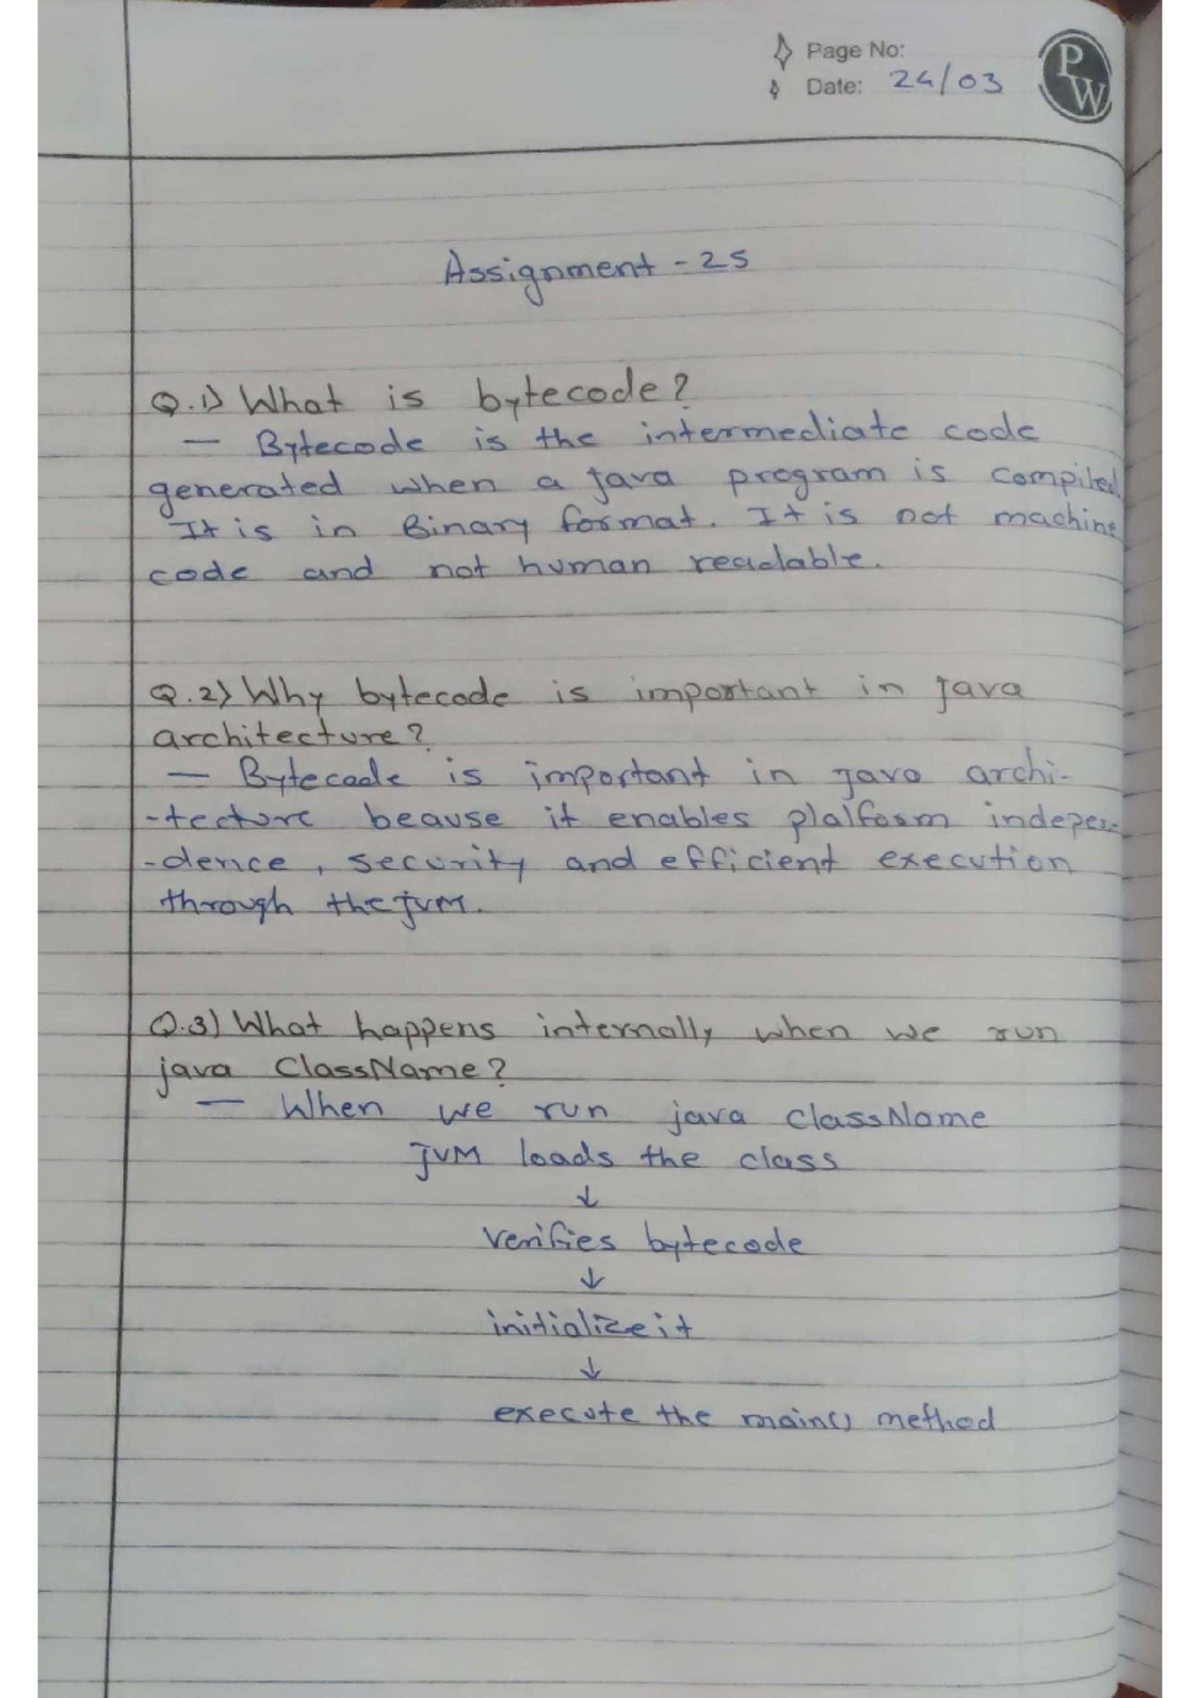 Page No:
Date: 24/03
PW
Assignment - 25
Q.1) What is bytecode?
— Bytecode is the intermediate code
generated when a java program is compiled.
It is in Binary format. It is not machine
code and not human readable.
Q.2) Why bytecode is important in java
architecture?
— Bytecode is important in java archi-
-tecture beause it enables platform indepen-
-dence, security and efficient execution
through the JVM.
Q.3) What happens internally when we run
java ClassName?
— When we run java className
JVM loads the class
↓
verifies bytecode
↓
initialize it
↓
execute the main() method